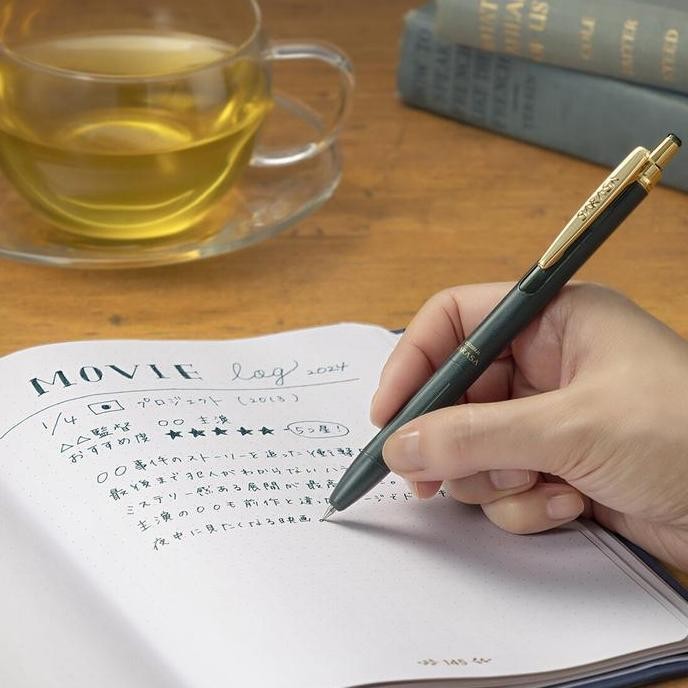 MOVIE log 2024
1/4 プロジェクト (2013)
△△監督 ○○主演
おすすめ度 ★★★★★ 5つ星!
○○事件のストーリーを追った衝撃
最後まで犯人がわからない
ミステリー感ある展開が最高
主演の○○も前作と違った
夜中に見たくなる映画
145
SARASA
SARASA
WHAT
OF US
COLE
HOW TO
SPEAK
FRENCH
LIKE THE
FRENCH